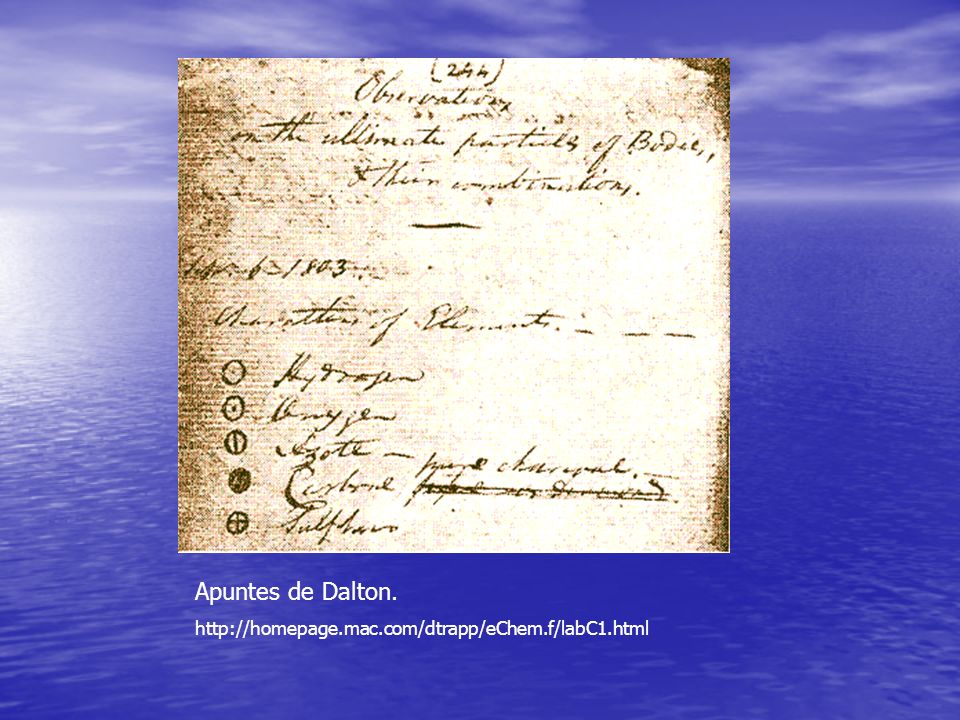 (244)
Observations
on the ultimate particles of Bodies,
& their combinations.
6 1803
Characters of Elements.
Hydrogen
Oxygen
Azote
Carbone pure charcoal.
Sulphur
Apuntes de Dalton.
http://homepage.mac.com/dtrapp/eChem.f/labC1.html